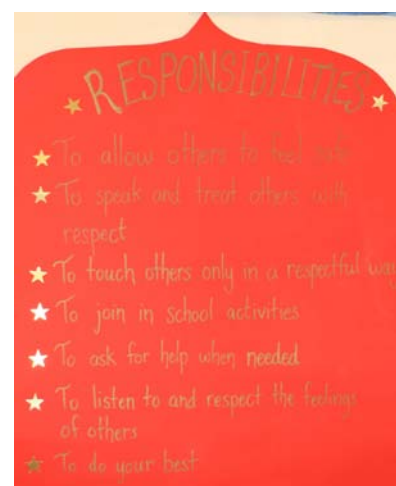 RESPONSIBILITIES
To allow others to feel safe
To speak and treat others with
respect
To touch others only in a respectful way
To join in school activities
To ask for help when needed
To listen to and respect the feelings
of others
To do your best